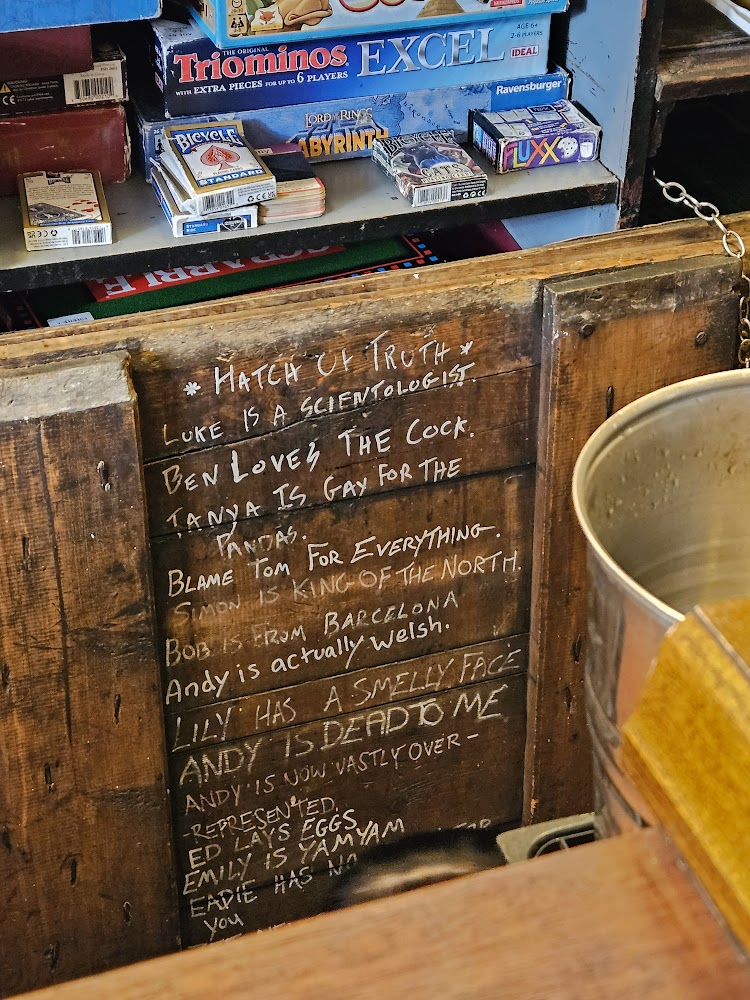 THE ORIGINAL
Triominos EXCEL
WITH EXTRA PIECES FOR UP TO 6 PLAYERS
AGE: 6+
2-6 PLAYERS
IDEAL
Ravensburger
LORD OF THE RINGS
LABYRINTH
BICYCLE
STANDARD
BICYCLE
FLUXX
SCRABBLE
* HATCH OF TRUTH *
LUKE IS A SCIENTOLOGIST.
BEN LOVES THE COCK.
TANYA IS GAY FOR THE
PANDAS.
BLAME TOM FOR EVERYTHING.
SIMON IS KING OF THE NORTH.
BOB IS FROM BARCELONA
Andy is actually Welsh.
LILY HAS A SMELLY FACE
ANDY IS DEAD TO ME
ANDY IS NOW VASTLY OVER-
-REPRESENTED.
ED LAYS EGGS
EMILY IS YAMYAM
EADIE HAS NO FOR
YOU